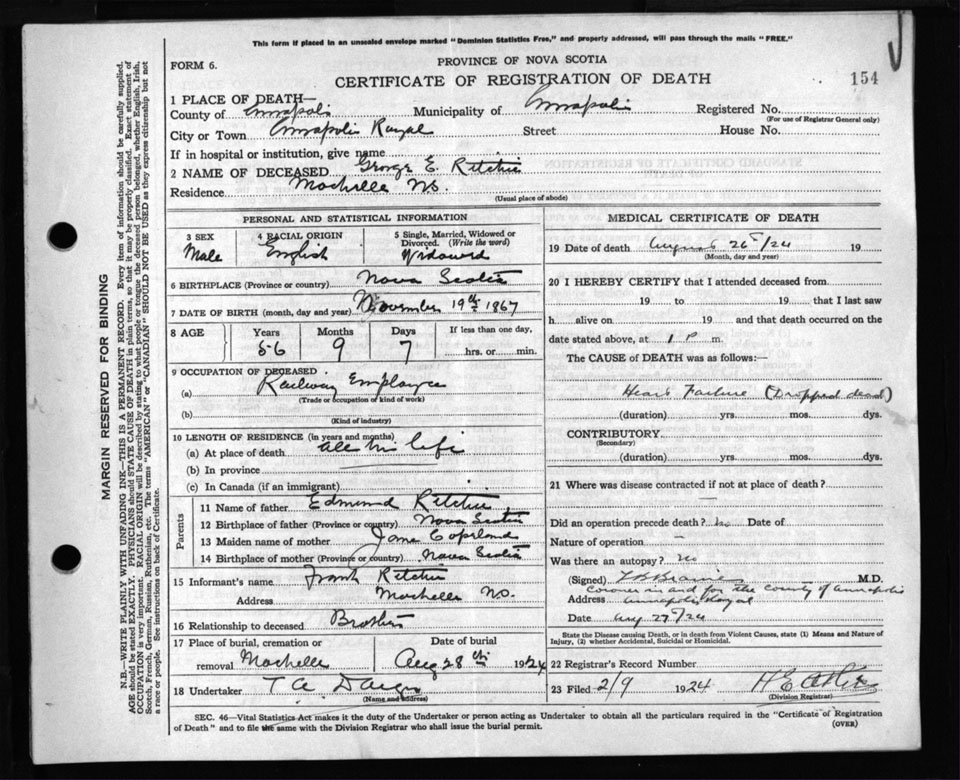 This form if placed in an unsealed envelope marked "Dominion Statistics Free," and properly addressed, will pass through the mails "FREE."
FORM 6.
PROVINCE OF NOVA SCOTIA
CERTIFICATE OF REGISTRATION OF DEATH
154
1 PLACE OF DEATH—
County of Annapolis Municipality of Annapolis Registered No.
(For use of Registrar General only)
City or Town Annapolis Royal Street House No.
If in hospital or institution, give name
2 NAME OF DECEASED George E Ritchie
Residence Mochelle NS.
(Usual place of abode)
PERSONAL AND STATISTICAL INFORMATION
3 SEX
Male
4 RACIAL ORIGIN
English
5 Single, Married, Widowed or Divorced. (Write the word)
Widowed
6 BIRTHPLACE (Province or country) Nova Scotia
7 DATE OF BIRTH (month, day and year) November 19th 1867
8 AGE
Years
56
Months
9
Days
7
If less than one day,
hrs. or min.
9 OCCUPATION OF DECEASED
(a) Railway Employee
(Trade or occupation of kind of work)
(b)
(Kind of industry)
10 LENGTH OF RESIDENCE (in years and months)
(a) At place of death all his life
(b) In province
(c) In Canada (if an immigrant)
Parents
11 Name of father Edmund Ritchie
12 Birthplace of father (Province or country) Nova Scotia
13 Maiden name of mother Jane Copeland
14 Birthplace of mother (Province or country) Nova Scotia
15 Informant's name Frank Ritchie
Address Mochelle NS.
16 Relationship to deceased Brother
17 Place of burial, cremation or removal Mochelle
Date of burial
Aug 28th 1924
18 Undertaker T A
(Name and address)
MEDICAL CERTIFICATE OF DEATH
19 Date of death August 26/24 19
(Month, day and year)
20 I HEREBY CERTIFY that I attended deceased from
19 to 19 that I last saw
h alive on 19 and that death occurred on the
date stated above, at 1 P m.
The CAUSE of DEATH was as follows:—
Heart Failure (Dropped dead)
(duration) yrs. mos. dys.
CONTRIBUTORY
(Secondary)
(duration) yrs. mos. dys.
21 Where was disease contracted if not at place of death?
—
Did an operation precede death? no Date of
Nature of operation —
Was there an autopsy? no
(Signed) M.D.
Coroner in and for the county of Annapolis
Address Annapolis Royal
Date Aug 27/24
State the Disease causing Death, or in death from Violent Causes, state (1) Means and Nature of
Injury, (2) whether Accidental, Suicidal or Homicidal.
22 Registrar's Record Number
23 Filed 2/9 1924
(Division Registrar)
SEC. 46—Vital Statistics Act makes it the duty of the Undertaker or person acting as Undertaker to obtain all the particulars required in the "Certificate of Registration
of Death" and to file the same with the Division Registrar who shall issue the burial permit.
(OVER)
MARGIN RESERVED FOR BINDING
N.B.—WRITE PLAINLY WITH UNFADING INK—THIS IS A PERMANENT RECORD. Every item of information should be carefully supplied.
AGE should be stated EXACTLY. PHYSICIANS should STATE CAUSE OF DEATH in plain terms, so that it may be properly classified. Exact statement of
OCCUPATION is very important. RACIAL ORIGIN will be described by stating to what people or tongue the deceased person belonged, whether English, Irish,
Scotch, French, German, Russian, Ruthenian, etc. The terms "AMERICAN" or "CANADIAN" SHOULD NOT BE USED as they express citizenship but not
a race or people. See instructions on back of Certificate.